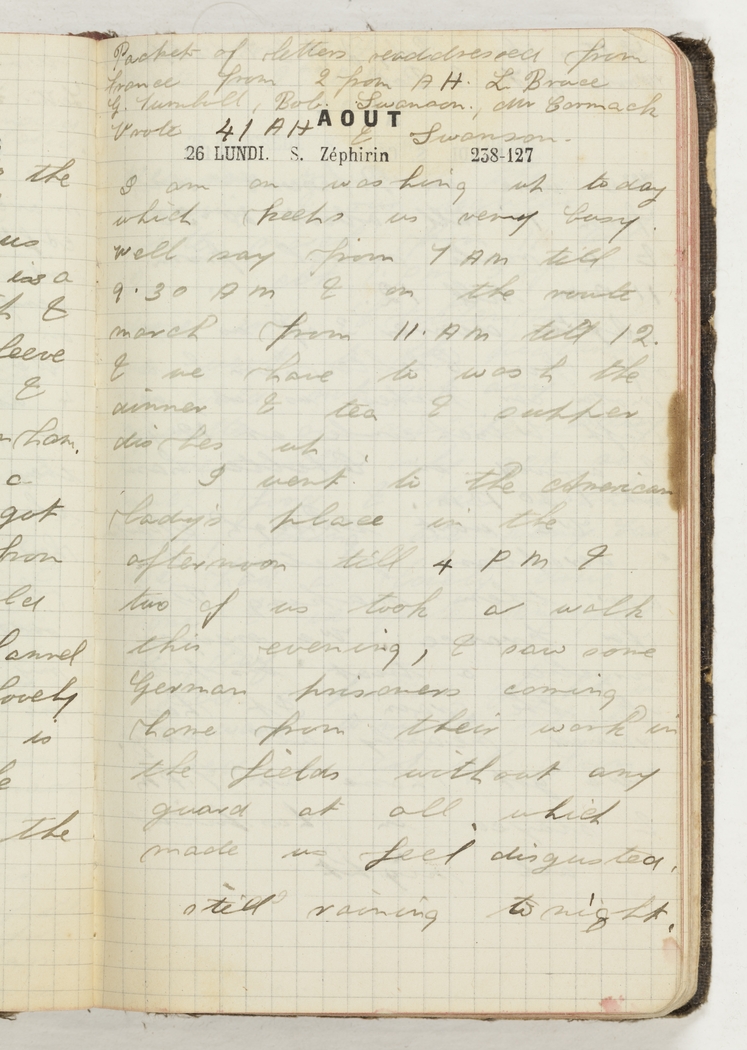 Packet of letters readdressed from
France from 2 from A H. L Bruce
G. Turnbull, Bob. Swanson., Mr Cormack
Wrote 41 A H & Swanson.
AOUT
26 LUNDI. S. Zéphirin 238-127
I am on washing up today
which keeps us very busy.
well say from 7 AM till
9.30 AM & on the route
march from 11. AM till 12.
& we have to wash the
dinner & tea & supper
dishes up.
I went to the American
lady's place in the
afternoon till 4 PM &
two of us took a walk
this evening, & saw some
German prisoners coming
home from their work in
the fields without any
guard at all, which
made us feel disgusted.
still raining to night.
the
us
is a
&
leeve
&
ham.
a
got
from
ld
lannel
lovely
is
the